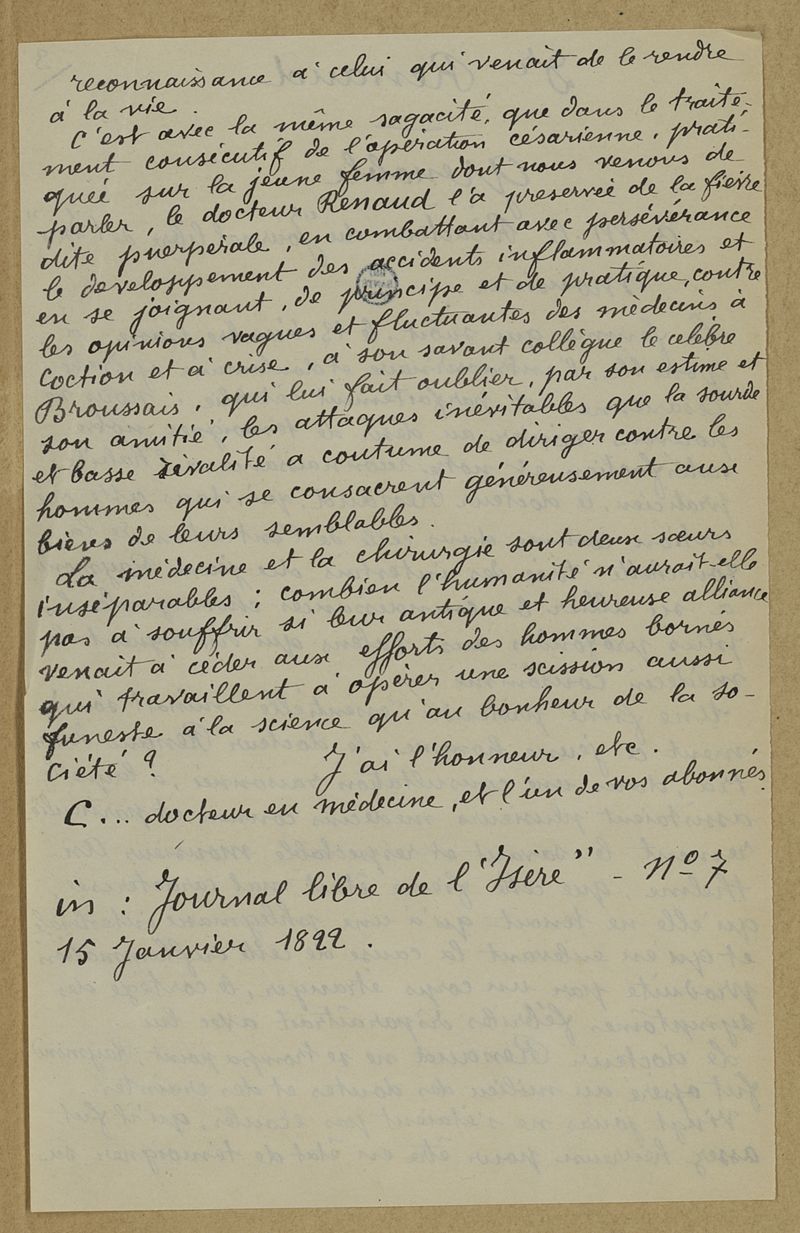 reconnaissance à celui qui venait de le rendre
à la vie.
C'est avec la même sagacité, que dans le traite-
ment consécutif de l'opération césarienne, prati-
quée sur la jeune femme dont nous venons de
parler, le docteur Renaud l'a preservée de la fièvre
dite puerpérale, en combattant avec persévérance
le developpement des accidents inflammatoires et
en se joignant, de principe et de pratique, contre
les opinions vagues et fluctuantes des médecins à
Coction et à crise, à son savant collègue le celèbre
Broussais, qui lui fait oublier, par son estime et
son amitié, les attaques inévitables que la sourde
et basse rivalité a coutume de diriger contre les
hommes qui se consacrent généreusement aux
biens de leurs semblables.
La médecine et la chirurgie sont deux sœurs
inséparables ; combien l'humanité n'aurait-elle
pas à souffrir si leur antique et heureuse alliance
venait à céder aux efforts des hommes bornés
qui travaillent à opérer une scission aussi
funeste à la science qu'au bonheur de la so-
ciété ? J'ai l'honneur, etc.
C... docteur en médecine, et l'un de vos abonnés.
in : Journal libre de l'Isère" - Nº 7
15 Janvier 1822.